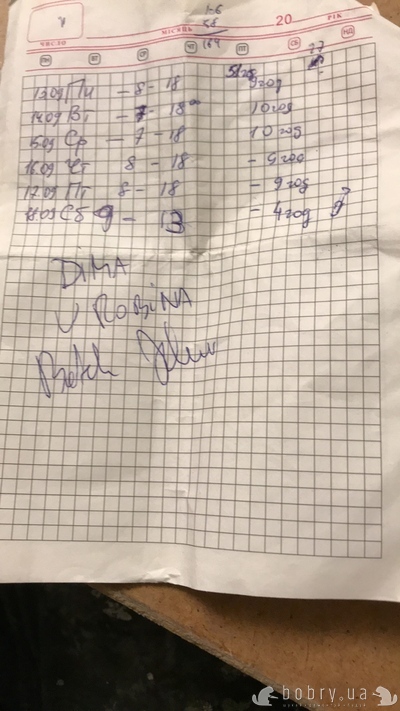 1-6
58
164
20
МІСЯЦЬ
РІК
ЧИСЛО
ПН ВТ СР ЧТ ПТ СБ НД
77
13.09 Пн - 8 - 18 9 год
14.09 Вт - 7 - 18⁰⁰ 10 год
15.09 Ср - 7 - 18 10 год
16.09 Чт 8 - 18 - 9 год
17.09 Пт 8 - 18 - 9 год
18.09 Сб 9 - 13 - 4 год
DIMA
U ROBINA
bobry.ua